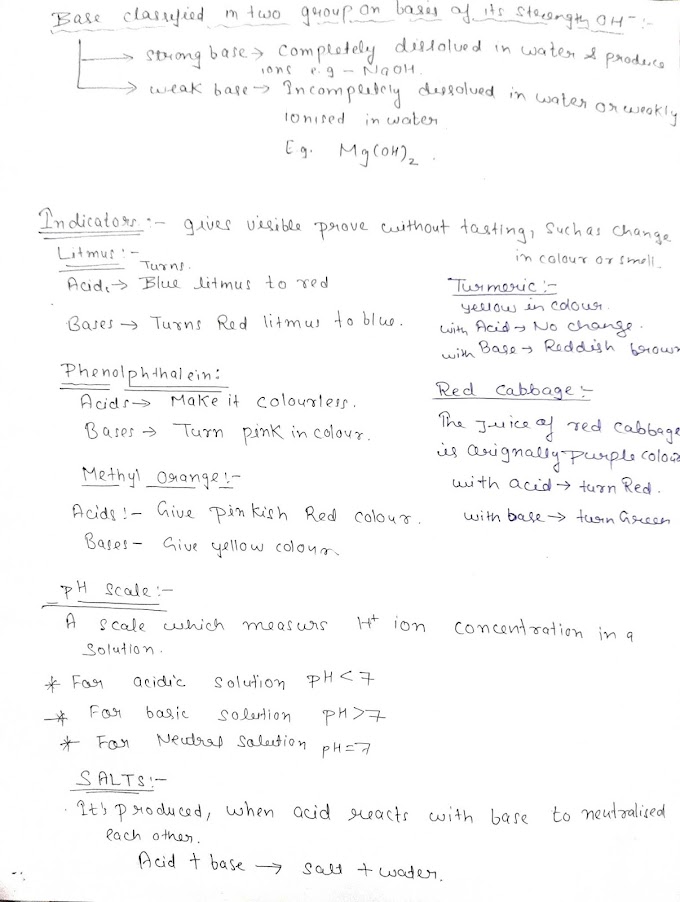 Base classified in two group on basis of its strength OH⁻:-
→ strong base → completely dissolved in water & produce
ions e.g - NaOH.
→ weak base → Incompletely dissolved in water or weakly
ionised in water
Eg. Mg(OH)₂.
Indicators:- gives visible prove without tasting, such as change
in colour or smell.
Litmus:-
Turns.
Acids → Blue litmus to red
Bases → Turns Red litmus to blue.
Phenolphthalein:
Acids → Make it colourless.
Bases → Turn pink in colour.
Methyl orange:-
Acids:- Give pinkish Red colour.
Bases- Give yellow colour
Turmeric:-
yellow in colour.
with Acid → No change.
with Base → Reddish brown
Red cabbage:-
The Juice of red cabbage
is orignally purple colou
with acid → turn Red.
with base → turn Green
pH scale:-
A scale which measurs H⁺ ion concentration in a
solution.
* For acidic solution pH<7
* For basic solution pH>7
* For Neutral solution pH=7
SALTS:-
. It's produced, when acid reacts with base to neutralised
each other.
Acid + base → salt + water.